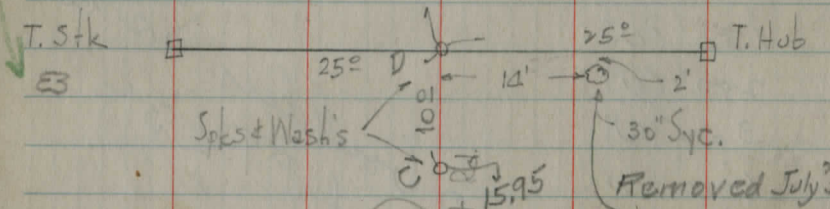 T. Stk
25º
T. Hub
25º
D
14'
2'
E3
101
Spks & Wash's
30" Syc.
C
15.95
Removed July